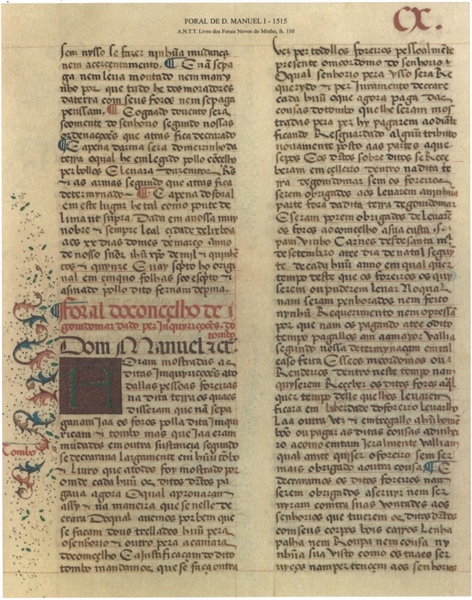 FORAL DE D. MANUEL I - 1515
A.N.T.T. Livro dos Forais Novos do Minho, fs. 110
CX.
sem nysso se fazer ninhũa mudança
nem acrecentamento. E nã se pa
ga nem leva montado nem many
nho por que tudo he dos moradores
da terra com seus foros nem se paga
penssam. O gaado do vento sera
somente do senhorio segundo nossas
ordenaçoões que atras fica decrarado
E a pena darma sera do meirinho da
terra qual he emlegido pollo cõcelho
per pollos
E as armas segundo que atras fica
determynado. E a pena do foral
em este lugar he tal como ponte de
lima ut supra Dada em a nossa muy
nobre e sempre leal çidade de lixboa
aos xx dias do mes de março
de nosso
e quynze E vay sespto ho org
nal em cinquo folhas
asinado pollo dito fernam de pina
foral do concelho de
goimdomar dado per Inquyriçoões do
tombo
Dom Manuel
Tombo
H
Eram mostradas as
ditas Inquyriçoões
dallas pessoas foreiras
na dita terra os quaes
disseram que nã se pa
gavam Ja os foros polla dita Inquy
ricam e tombo mas que Jaa eram
mudados em outra sustancia segund
se decrarava largamente em hũu tõbo
e Livro que a todos foy mostrado por
onde cada hũu
pagava agora O qual aprovaram
assy e na maneira que se nelle de
crara Do qual avemos por bem que
se facam dous trellados hũu pera
o senhorio e outro pera a camara
do concelho E a Justificaçam do dito
tombo mandamos que se faça outra
vez per todollos foreiros pessoalmente
presente o mordomo do senhorio e
O qual senhorio pera ysso sera Re
querydo e per Juramento decrare
cada hũu o que agora paga das
cousas do tombo que lhe eram mos
tradas pera per hy pagarem ao diãte
ficando Resguardado algũu tributo
novamente posto aas partes a que
pertence
beram em çelleiro dentro na dita te
rra de gomdomar sem os foreiros
serem obrigados aos levarem a ninhũa
parte fora da dita terra de gomdomar
E seram porem obrigados de levarẽ
os foros ao concelho a sua custa
pam vinho Carnes desde santa mª
de setembro atee dia de natal segyn
te de cada hũu anno em qual quer
tempo deste que os foreiros os quy
serem ou puderem levar No qual
nam seram penhorados nem feito
nynhũu Requerimento nem opressã
por que nam os pagando atee o dito
tempo pagallos am a mayor vallia
segundo nossa determynaçam em tal
caso feita E se os mordomos ou
Rendeiros dentro neste tempo nam
quyserem Receber os ditos foros a qal
quer tempo delle que lhes levarem
ficara em liberdade do foreiro levarlho
Laa outra vez e entregallo a hũu home
bõo ou pagar as ditas cousas a dinhey
ro a como entam Jeralmente valliam
qual ante quiser o foreiro sem ser
mais obrigado a outra cousa. E
decraramos os ditos foreiros nam
serem obrigados a servyr nem ser
vyram contra suas vontades aos
senhorios que tiverem os ditos
com seus corpos bois carros Lenha
palha nem Roupa nem cousa ny
nhũa sua visto como os taaes ser
vyços nam pertençem aos